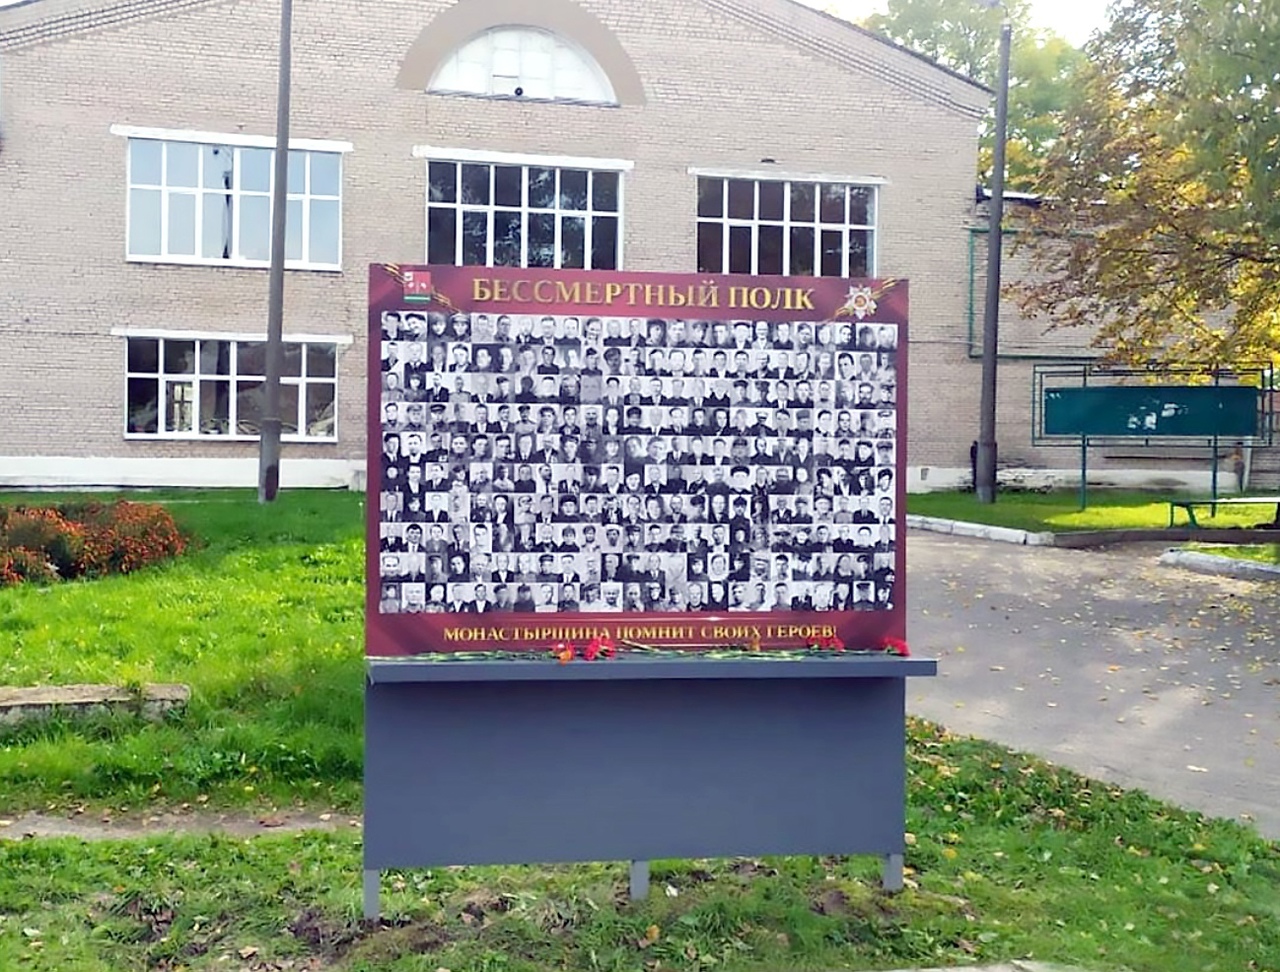 БЕССМЕРТНЫЙ ПОЛК
МОНАСТЫРЩИНА ПОМНИТ СВОИХ ГЕРОЕВ!